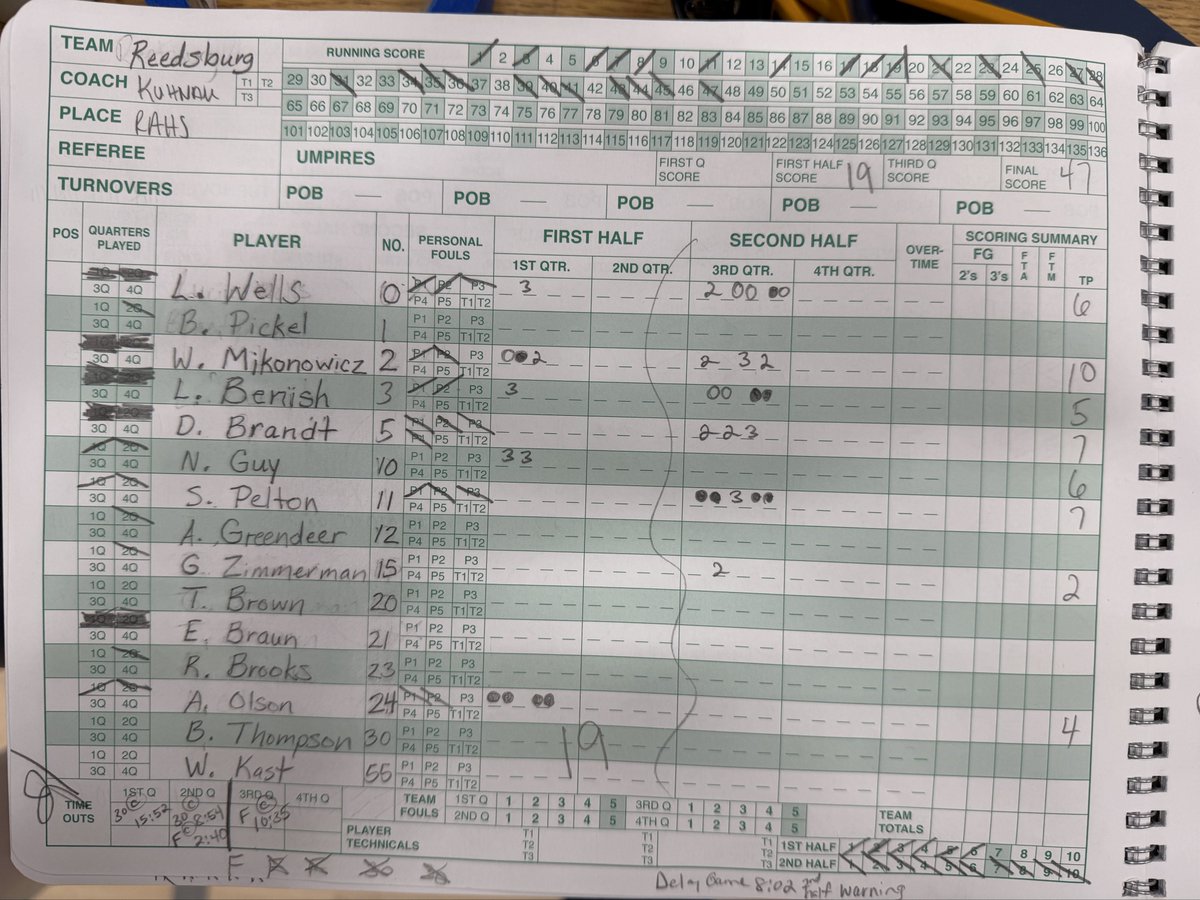 TEAM Reedsburg RUNNING SCORE 1 2 3 4 5 6 7 8 9 10 11 12 13 14 15 16 17 18 19 20 21 22 23 24 25 26 27 28
COACH KUHNAU T1 T2 T3 29 30 31 32 33 34 35 36 37 38 39 40 41 42 43 44 45 46 47 48 49 50 51 52 53 54 55 56 57 58 59 60 61 62 63 64
PLACE RAHS 65 66 67 68 69 70 71 72 73 74 75 76 77 78 79 80 81 82 83 84 85 86 87 88 89 90 91 92 93 94 95 96 97 98 99 100
101 102 103 104 105 106 107 108 109 110 111 112 113 114 115 116 117 118 119 120 121 122 123 124 125 126 127 128 129 130 131 132 133 134 135 136
REFEREE UMPIRES FIRST Q SCORE FIRST HALF SCORE 19 THIRD Q SCORE FINAL SCORE 47
TURNOVERS POB — POB — POB — POB — POB —
POS QUARTERS PLAYED PLAYER NO. PERSONAL FOULS FIRST HALF SECOND HALF OVER-TIME SCORING SUMMARY
1ST QTR. 2ND QTR. 3RD QTR. 4TH QTR. FG 2's 3's FTA FTM TP
1Q 2Q 3Q 4Q L. Wells 0 P1 P2 P3 P4 P5 T1 T2 3 2 00 00 6
1Q 2Q 3Q 4Q B. Pickel 1 P1 P2 P3 P4 P5 T1 T2
1Q 2Q 3Q 4Q W. Mikonowicz 2 P1 P2 P3 P4 P5 T1 T2 002 2 3 2 10
1Q 2Q 3Q 4Q L. Benish 3 P1 P2 P3 P4 P5 T1 T2 3 00 00 5
1Q 2Q 3Q 4Q D. Brandt 5 P1 P2 P3 P4 P5 T1 T2 2 2 3 7
1Q 2Q 3Q 4Q N. Guy 10 P1 P2 P3 P4 P5 T1 T2 3 3 6
1Q 2Q 3Q 4Q S. Pelton 11 P1 P2 P3 P4 P5 T1 T2 00 3 00 7
1Q 2Q 3Q 4Q A. Greendeer 12 P1 P2 P3 P4 P5 T1 T2
1Q 2Q 3Q 4Q G. Zimmerman 15 P1 P2 P3 P4 P5 T1 T2 2 2
1Q 2Q 3Q 4Q T. Brown 20 P1 P2 P3 P4 P5 T1 T2
1Q 2Q 3Q 4Q E. Braun 21 P1 P2 P3 P4 P5 T1 T2
1Q 2Q 3Q 4Q R. Brooks 23 P1 P2 P3 P4 P5 T1 T2
1Q 2Q 3Q 4Q A. Olson 24 P1 P2 P3 P4 P5 T1 T2 00 00 4
1Q 2Q 3Q 4Q B. Thompson 30 P1 P2 P3 P4 P5 T1 T2 19
1Q 2Q 3Q 4Q W. Kast 55 P1 P2 P3 P4 P5 T1 T2
TIME OUTS 1ST Q 30 C 15:52 2ND Q C 30 8:54 C F 2:40 3RD Q C F 10:35 4TH Q
TEAM FOULS 1ST Q 1 2 3 4 5 3RD Q 1 2 3 4 5 TEAM TOTALS
2ND Q 1 2 3 4 5 4TH Q 1 2 3 4 5
PLAYER TECHNICALS T1 T2 T3 T1 T2 T3 T1 T2 T3 1ST HALF 1 2 3 4 5 6 7 8 9 10
2ND HALF 1 2 3 4 5 6 7 8 9 10
F F F 30 30
Delay Game 8:02 2nd half Warning